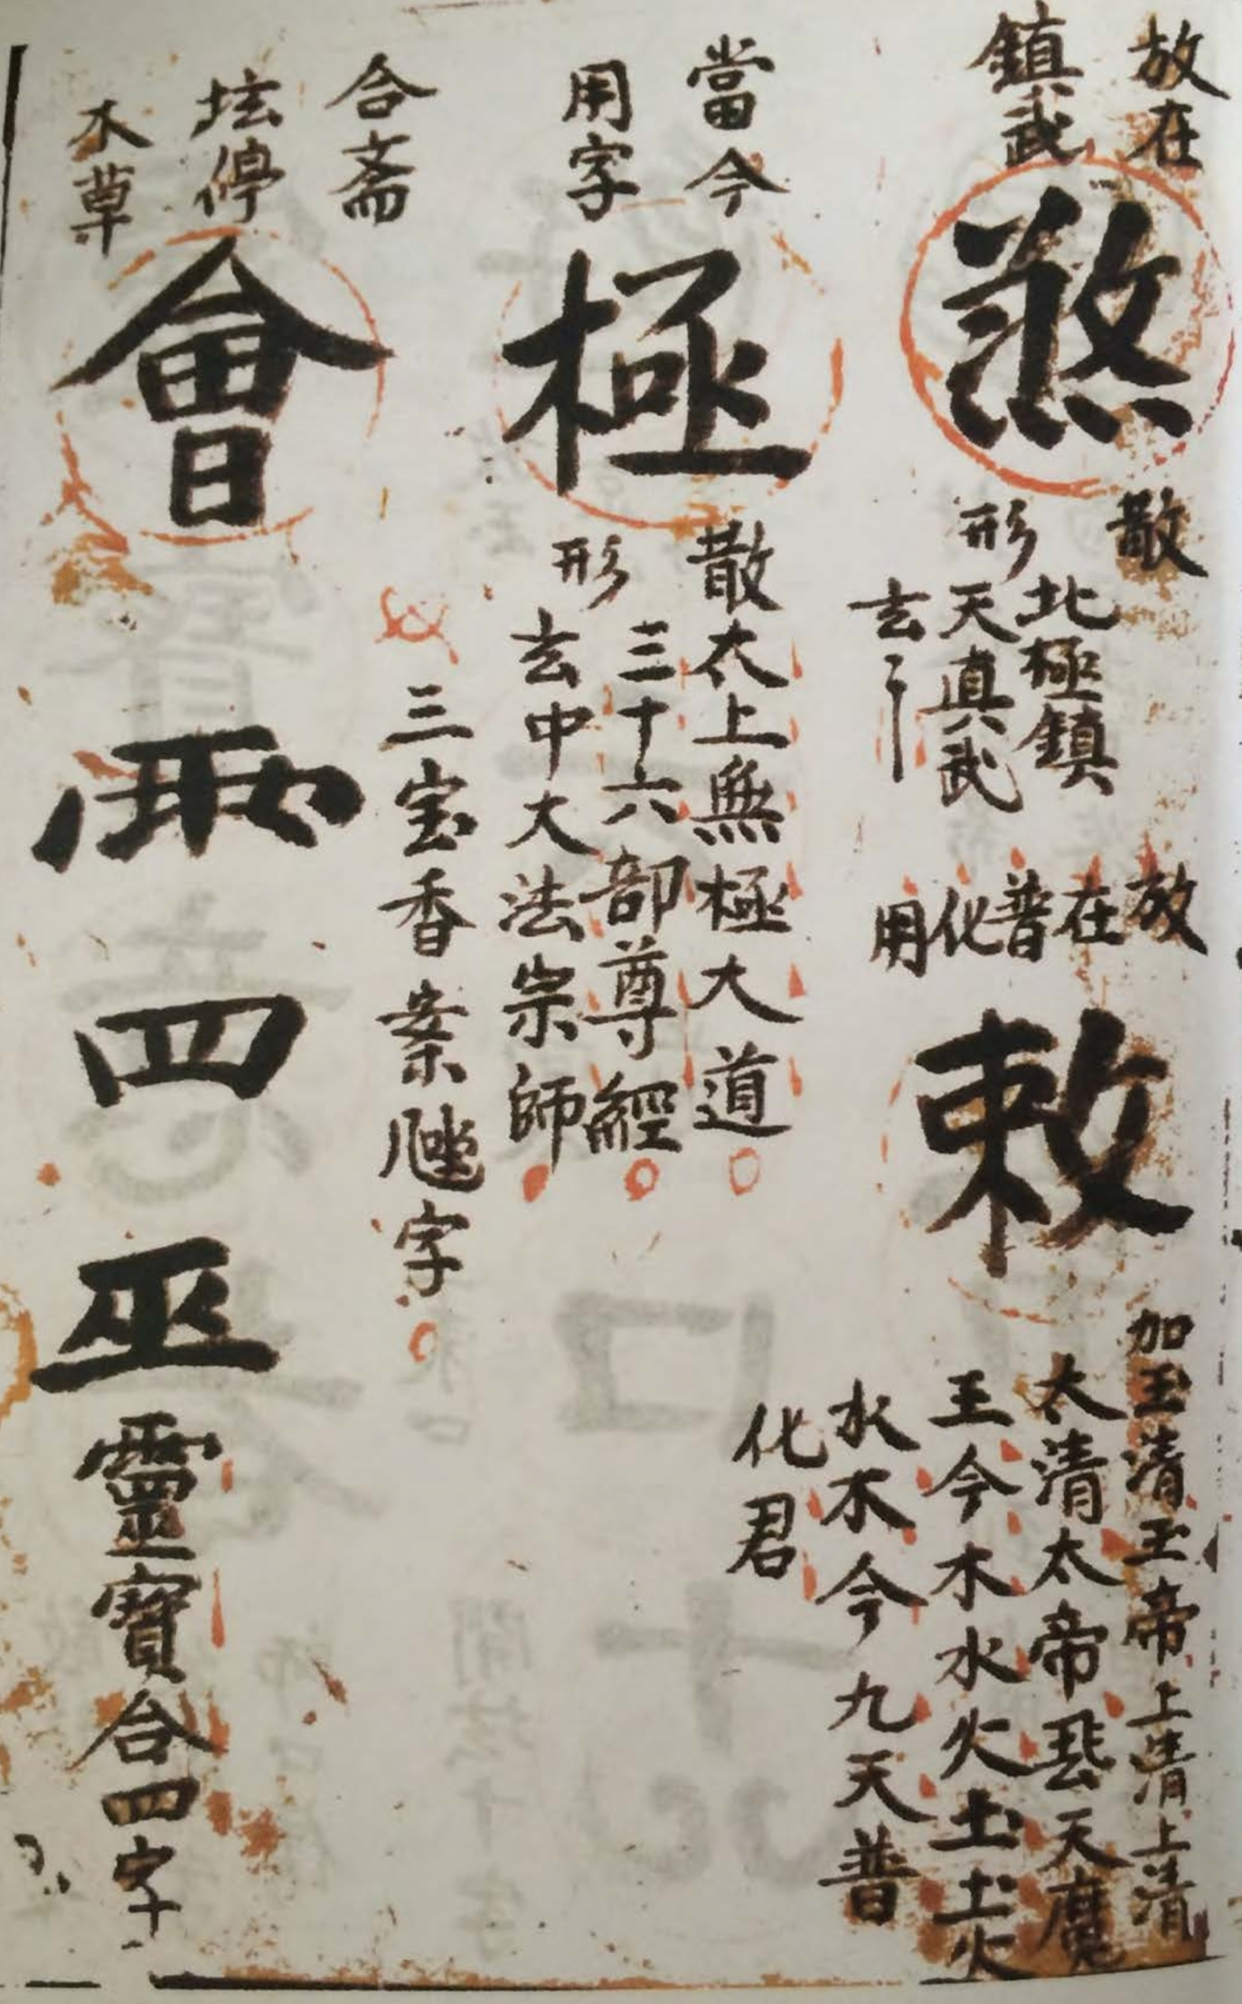 放在
鎮武
煞
散
形
北極鎮
天真武
玄
放
在
普
化
用
敕
加玉清玉帝上清上清
太清太帝 天魔
王今木水火土土火
水木今九天普
化君
當今
用字
極
散
形
太上無極大道
三十六部尊經
玄中大法宗師
三宝香案 字
合斋
坛停
木草
會
雨
四
巫
靈寶合四字